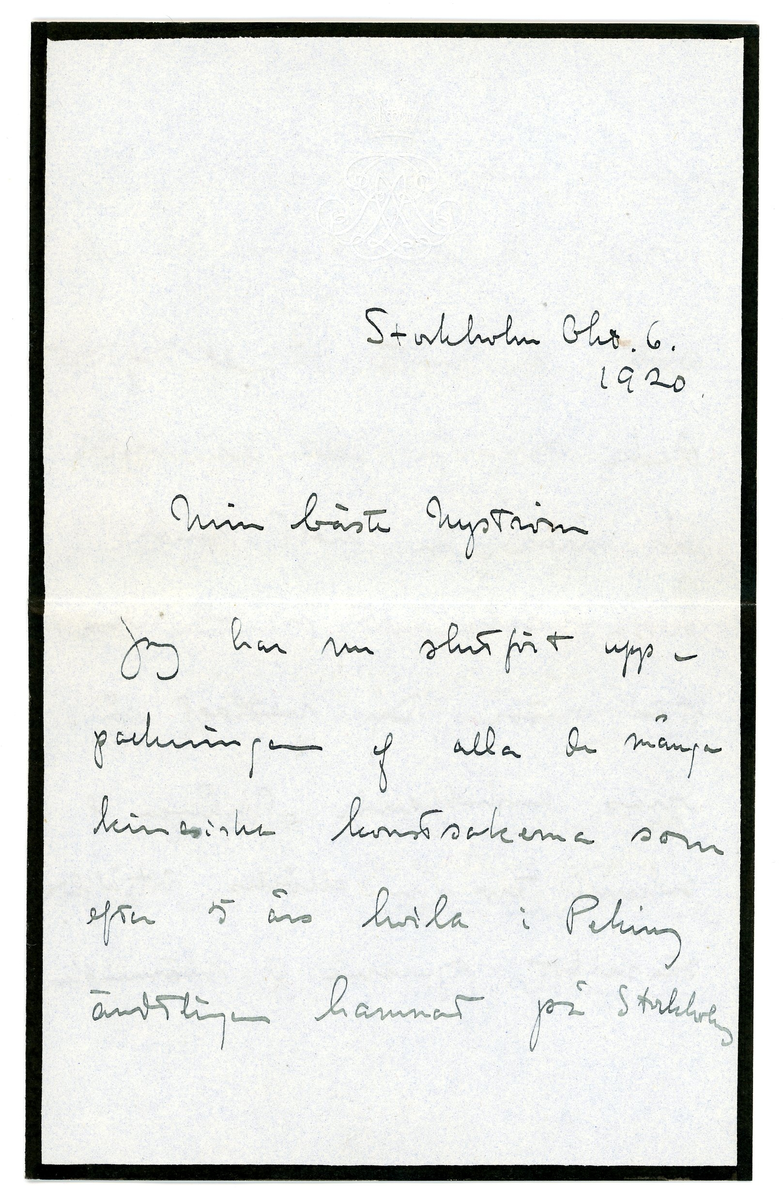 Stockholm Okt. 6.
1920.
Min bäste Nyström
Jag har nu slutfört upp-
packningen af alla de många
kinesiska konstsakerna som
efter 5 års hvila i Peking
ändtligen hamnat på Stockholms